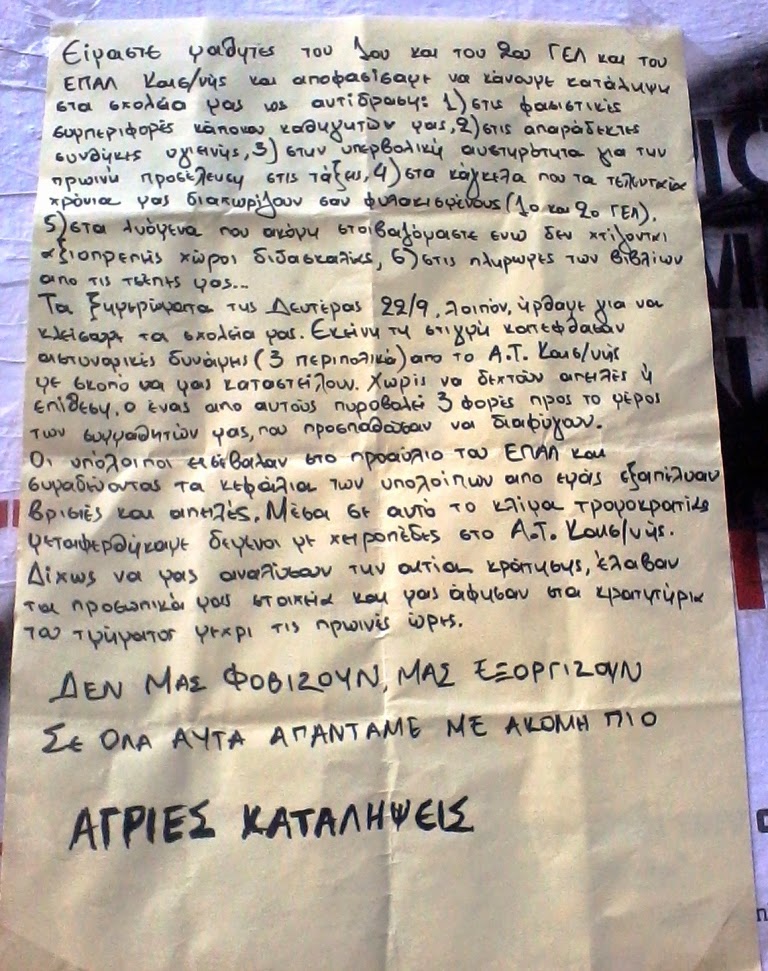 Είμαστε μαθητές του 1ου και του 2ου ΓΕΛ και του
ΕΠΑΛ Και/νής και αποφασίσαμε να κάνουμε κατάληψη
στα σχολεία μας ως αντίδραση: 1) στις φασιστικές
συμπεριφορές κάποιων καθηγητών μας, 2) στις απαράδεκτες
συνθήκες υγιεινής, 3) στην υπερβολική αυστηρότητα για την
πρωινή προσέλευση στις τάξεις, 4) στα κάγκελα που τα τελευταία
χρόνια μας διαχωρίζουν σαν φυλακισμένους (1ο και 2ο ΓΕΛ),
5) στα λυόμενα που ακόμη στοιβαζόμαστε ενώ δεν χτίζονται
αξιοπρεπής χώροι διδασκαλίας, 6) στις πληρωμές των βιβλίων
απο τις τσέπες μας...
Τα ξημερώματα της Δευτέρας 22/9, λοιπόν, ήρθαμε για να
κλείσουμε τα σχολεία μας. Εκείνη τη στιγμή κατέφθασαν
αστυνομικές δυνάμης (3 περιπολικά) απο το Α.Τ. Και/νής
με σκοπό να μας καταστείλουν. Χωρίς να δεχτούν απειλές ή
επίθεση, ο ένας απο αυτούς πυροβολεί 3 φορές προς το μέρος
των συμμαθητών μας, που προσπαθούσαν να διαφύγουν.
Οι υπόλοιποι εισέβαλαν στο προαύλιο του ΕΠΑΛ και
σημαδεύοντας τα κεφάλια των υπολοίπων απο εμάς εξαπέλυαν
βρισιές και απειλές. Μέσα σε αυτό το κλίμα τρομοκρατίας
μεταφερθήκαμε δεμένοι με χειροπέδες στο Α.Τ. Και/νής.
Δίχως να μας αναλύσουν την αιτία κράτησης, έλαβαν
τα προσωπικά μας στοιχεία και μας άφησαν στα κρατητήρια
του τμήματος μέχρι τις πρωινές ώρες.
ΔΕΝ ΜΑΣ ΦΟΒΙΖΟΥΝ, ΜΑΣ ΕΞΟΡΓΙΖΟΥΝ
ΣΕ ΟΛΑ ΑΥΤΑ ΑΠΑΝΤΑΜΕ ΜΕ ΑΚΟΜΗ ΠΙΟ
ΑΓΡΙΕΣ ΚΑΤΑΛΗΨΕΙΣ